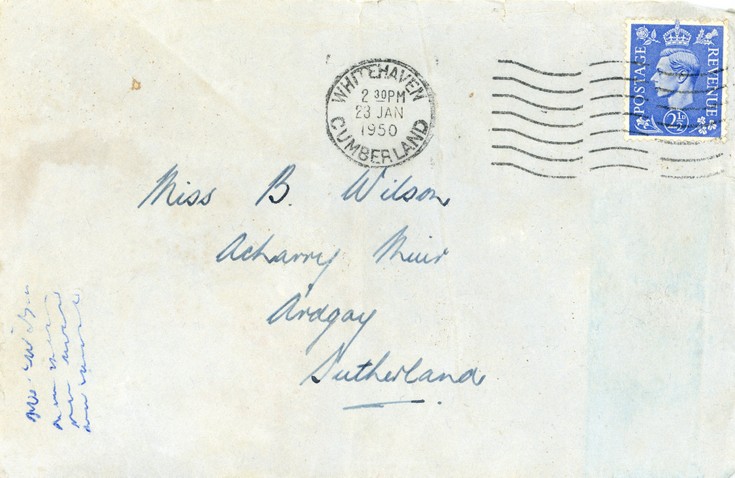 WHITEHAVEN
2 30PM
23 JAN
1950
CUMBERLAND
POSTAGE
REVENUE
2½D
Miss B. Wilson
Acharry Muir
Ardgay
Sutherland